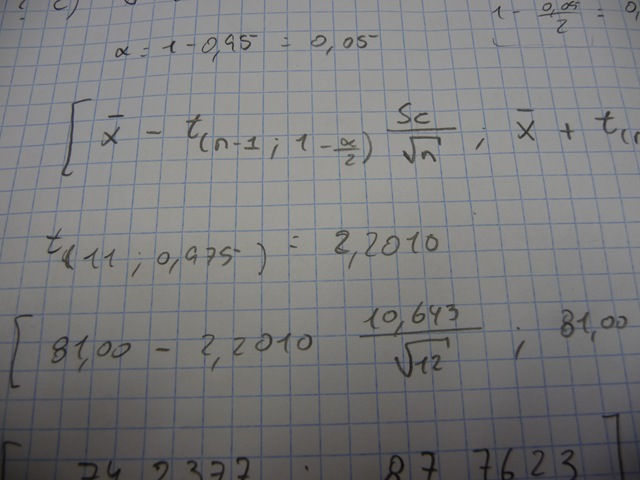 1 - 0,05/2 = 0,
α = 1 - 0,95 = 0,05
[ x̄ - t(n-1 ; 1 - α/2) Sc/√n ; x̄ + t(n
t(11 ; 0,975) = 2,2010
[ 81,00 - 2,2010 10,643/√12 ; 81,00
[ 74,2377 ; 87,7623 ]